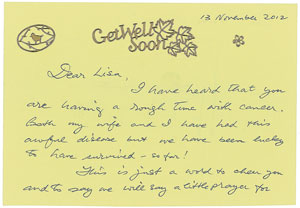 13 November 2012
Get Well
Soon
Dear Lisa,
I have heard that you
are having a rough time with cancer.
Both my wife and I have had this
awful disease but we have been lucky
to have survived - so far!
This is just a word to cheer you
and to say we will say a little prayer for